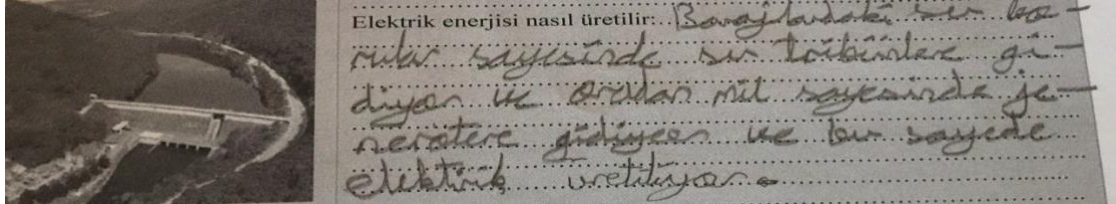 Elektrik enerjisi nasıl üretilir: Barajlardaki su bo-
rular sayesinde su tribünlere gi-
diyor ve oradan mil sayesinde je-
neratere gidiyeor ve bu sayede
elektirik üretiliyor.